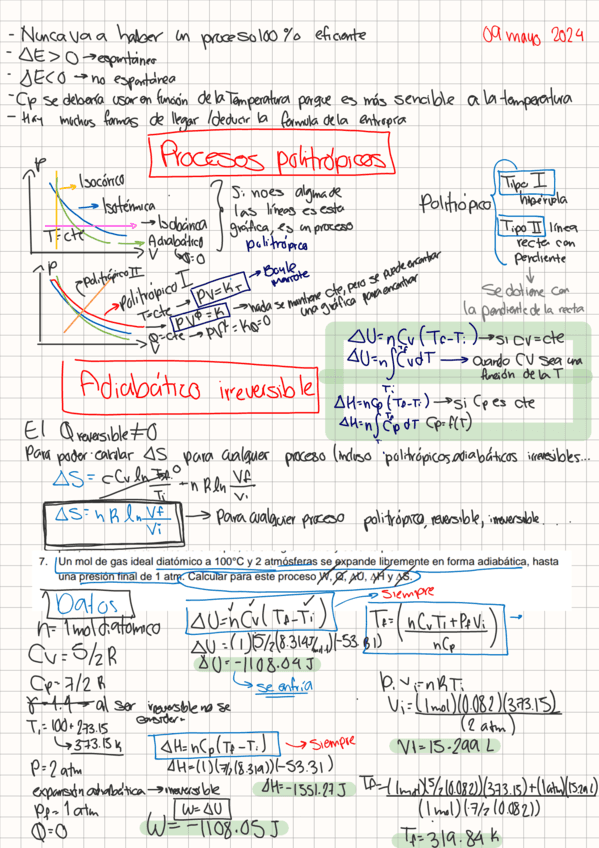 - Nunca va a haber un proceso 100% eficiente
09 mayo 2024
- ΔE > 0 → espontánea
- ΔE < 0 → no espontánea
- Cp se debería usar en función de la Temperatura porque es más sencible a la temperatura
- Hay muchas formas de llegar /deducir la formula de la entropía
Procesos politrópicos
P
Isocórico
Isotérmica
Isobárica
T=cte
Adiabático
V
Q=0
Si no es alguna de
las líneas es esta
gráfica, es un proceso
politrópico
Politrópico
Tipo I
hipérbola
Tipo II línea
recta con
pendiente
Se obtiene con
la pendiente de la recta
P
Politrópico II
Politrópico I
T=cte → PV=K_T → Boyle
Mariotte
PVᵠ=K → nada se mantiene cte, pero se puede encontrar
una gráfica para encontrar
Q=cte → PVᵞ=K Q=0
V
ΔU=nCv(Tf-Ti) → si CV=cte
ΔU=n∫Cv dT → Cuando CV sea una
función de la T
Ti
ΔH=nCp(Tf-Ti) → si Cp es cte
ΔH=n∫Cp dT Cp=f(T)
Adiabático irreversible
El Q reversible ≠ 0
Para poder calcular ΔS para cualquier proceso (Incluso politrópicos, adiabáticos irreversibles...
ΔS = Cv ln Tf/Ti ⁰ + n R ln Vf/Vi
ΔS = n R ln Vf/Vi → Para cualquier proceso politrópico, reversible, irreversible ....
7. Un mol de gas ideal diatómico a 100°C y 2 atmósferas se expande libremente en forma adiabática, hasta
una presión final de 1 atm. Calcular para este proceso W, Q, ΔU, ΔH y ΔS.
Siempre
Datos
n= 1mol diatómico
Cv= 5/2 R
Cp= 7/2 R
γ = 1.4 → al ser irreversible no se
considera
T₁ = 100 + 273.15
→ 373.15 K
P= 2 atm
expansión adiabática → irreversible
Pf = 1 atm
Q=0
ΔU=nCv(Tf-Ti)
ΔU= (1)(5/2)(8.314)(-53.31)
ΔU= -1108.04 J
→ se enfría
ΔH=nCp(Tf-Ti) → Siempre
ΔH=(1)(7/2(8.314))(-53.31)
ΔH= -1551.27 J
W=ΔU
W= -1108.05 J
Tf= (nCvTi + PfVi / nCp) →
Pi Vi = nRTi
Vi = (1mol)(0.082)(373.15) / (2 atm)
Vi = 15.299 L
Tf = (1mol)(5/2(0.082))(373.15)+(1atm)(15.29L) / (1mol)(7/2(0.082))
Tf= 319.84 K